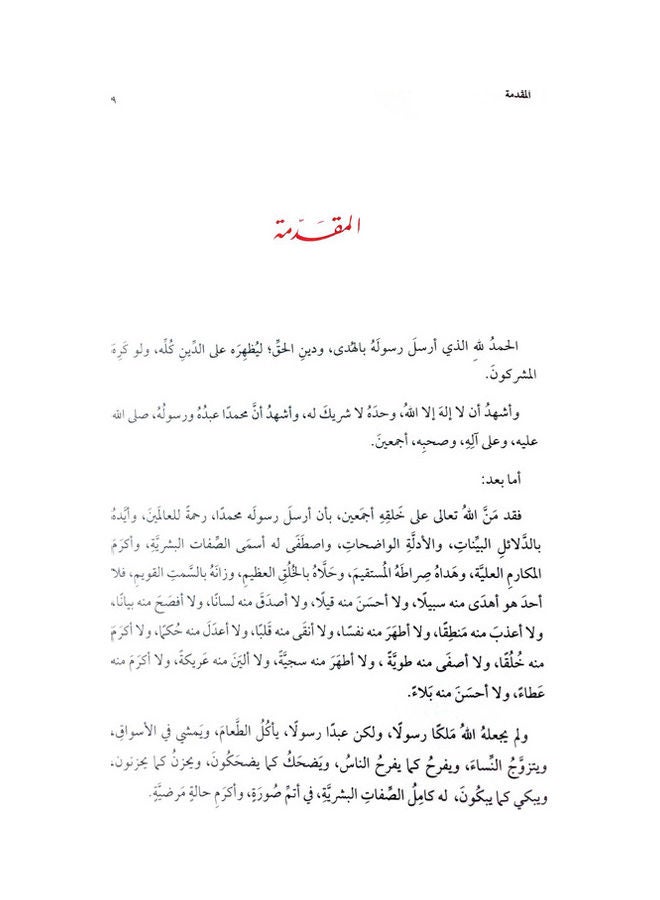 المقدمة
٩
المقَدّمة
الحمدُ للهِ الذي أرسلَ رسولَهُ بالهُدى، ودينِ الحقِّ؛ ليُظهِرَه على الدِّينِ كُلِّه، ولو كَرِهَ
المشركونَ.
وأشهدُ أن لا إلهَ إلا اللهُ، وحدَهُ لا شريكَ له، وأشهدُ أنَّ محمدًا عبدُهُ ورسولُهُ، صلى الله
عليه، وعلى آلِهِ، وصحبِه، أجمعينَ.
أما بعد:
فقد مَنَّ اللهُ تعالى على خَلقِهِ أجمَعين، بأن أرسلَ رسولَه محمدًا، رحمةً للعالمَينَ، وأيَّدهُ
بالدَّلائلِ البيِّناتِ، والأدلَّةِ الواضحاتِ، واصطَفَى له أسمَى الصِّفات البشريَّةِ، وأكرَمَ
المكارمِ العليَّة، وهَداهُ صِراطَهُ المُستقيمَ، وحَلَّاهُ بالخُلُقِ العظيمِ، وزانَهُ بالسَّمتِ القويمِ، فلا
أحدَ هو أهدَى منه سبيلًا، ولا أحسَنَ منه قيلًا، ولا أصدَقَ منه لسانًا، ولا أفصَحَ منه بيانًا،
ولا أعذبَ منه مَنطِقًا، ولا أطهَرَ منه نفسًا، ولا أنقَى منه قلبًا، ولا أعدَلَ منه حُكمًا، ولا أكرَمَ
منه خُلُقًا، ولا أصفَى منه طويَّةً، ولا أطهَرَ منه سجيَّةً، ولا أليَنَ منه عَريكةً، ولا أكرَمَ منه
عَطاءً، ولا أحسَنَ منه بَلاءً.
ولم يجعلهُ اللهُ مَلَكًا رسولًا، ولكن عبدًا رسولًا، يأكُلُ الطَّعامَ، ويَمشي في الأسواقِ،
ويتزوَّجُ النِّساءَ، ويفرحُ كما يفرحُ الناسُ، ويَضحَكُ كما يضحَكُونَ، ويحزنُ كما يحزنون،
ويبكي كما يبكُونَ، له كامِلُ الصِّفاتِ البشريَّةِ، في أتمِّ صُورَةٍ، وأكرَمِ حالةٍ مَرضيَّةٍ.